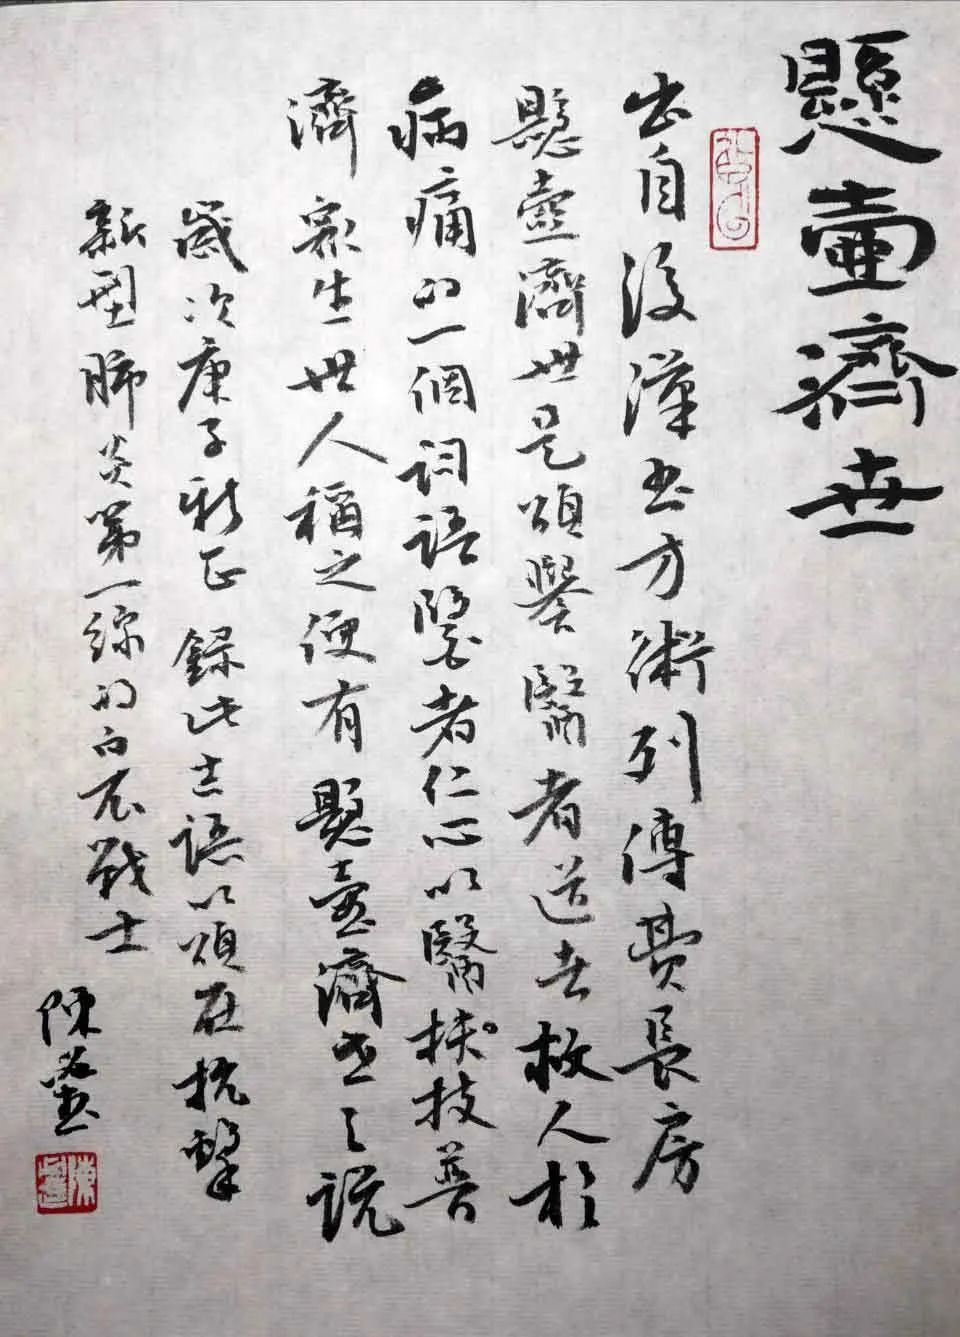 懸壺濟世
出自後漢書方術列傳費長房
懸壺濟世是頌譽醫者道者救人於
病痛的一個詞語醫者仁心以醫技普
濟眾生世人稱之便有懸壺濟世之說
歲次庚子新正錄此吉語以頌在抗擊
新型肺炎第一線的白衣戰士
陳